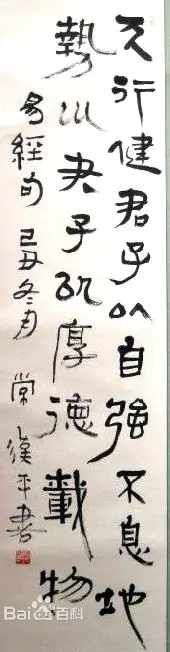 天行健君子以自強不息地
勢巛君子以厚德載物
易經句 己丑冬月 常平書
Bai百科